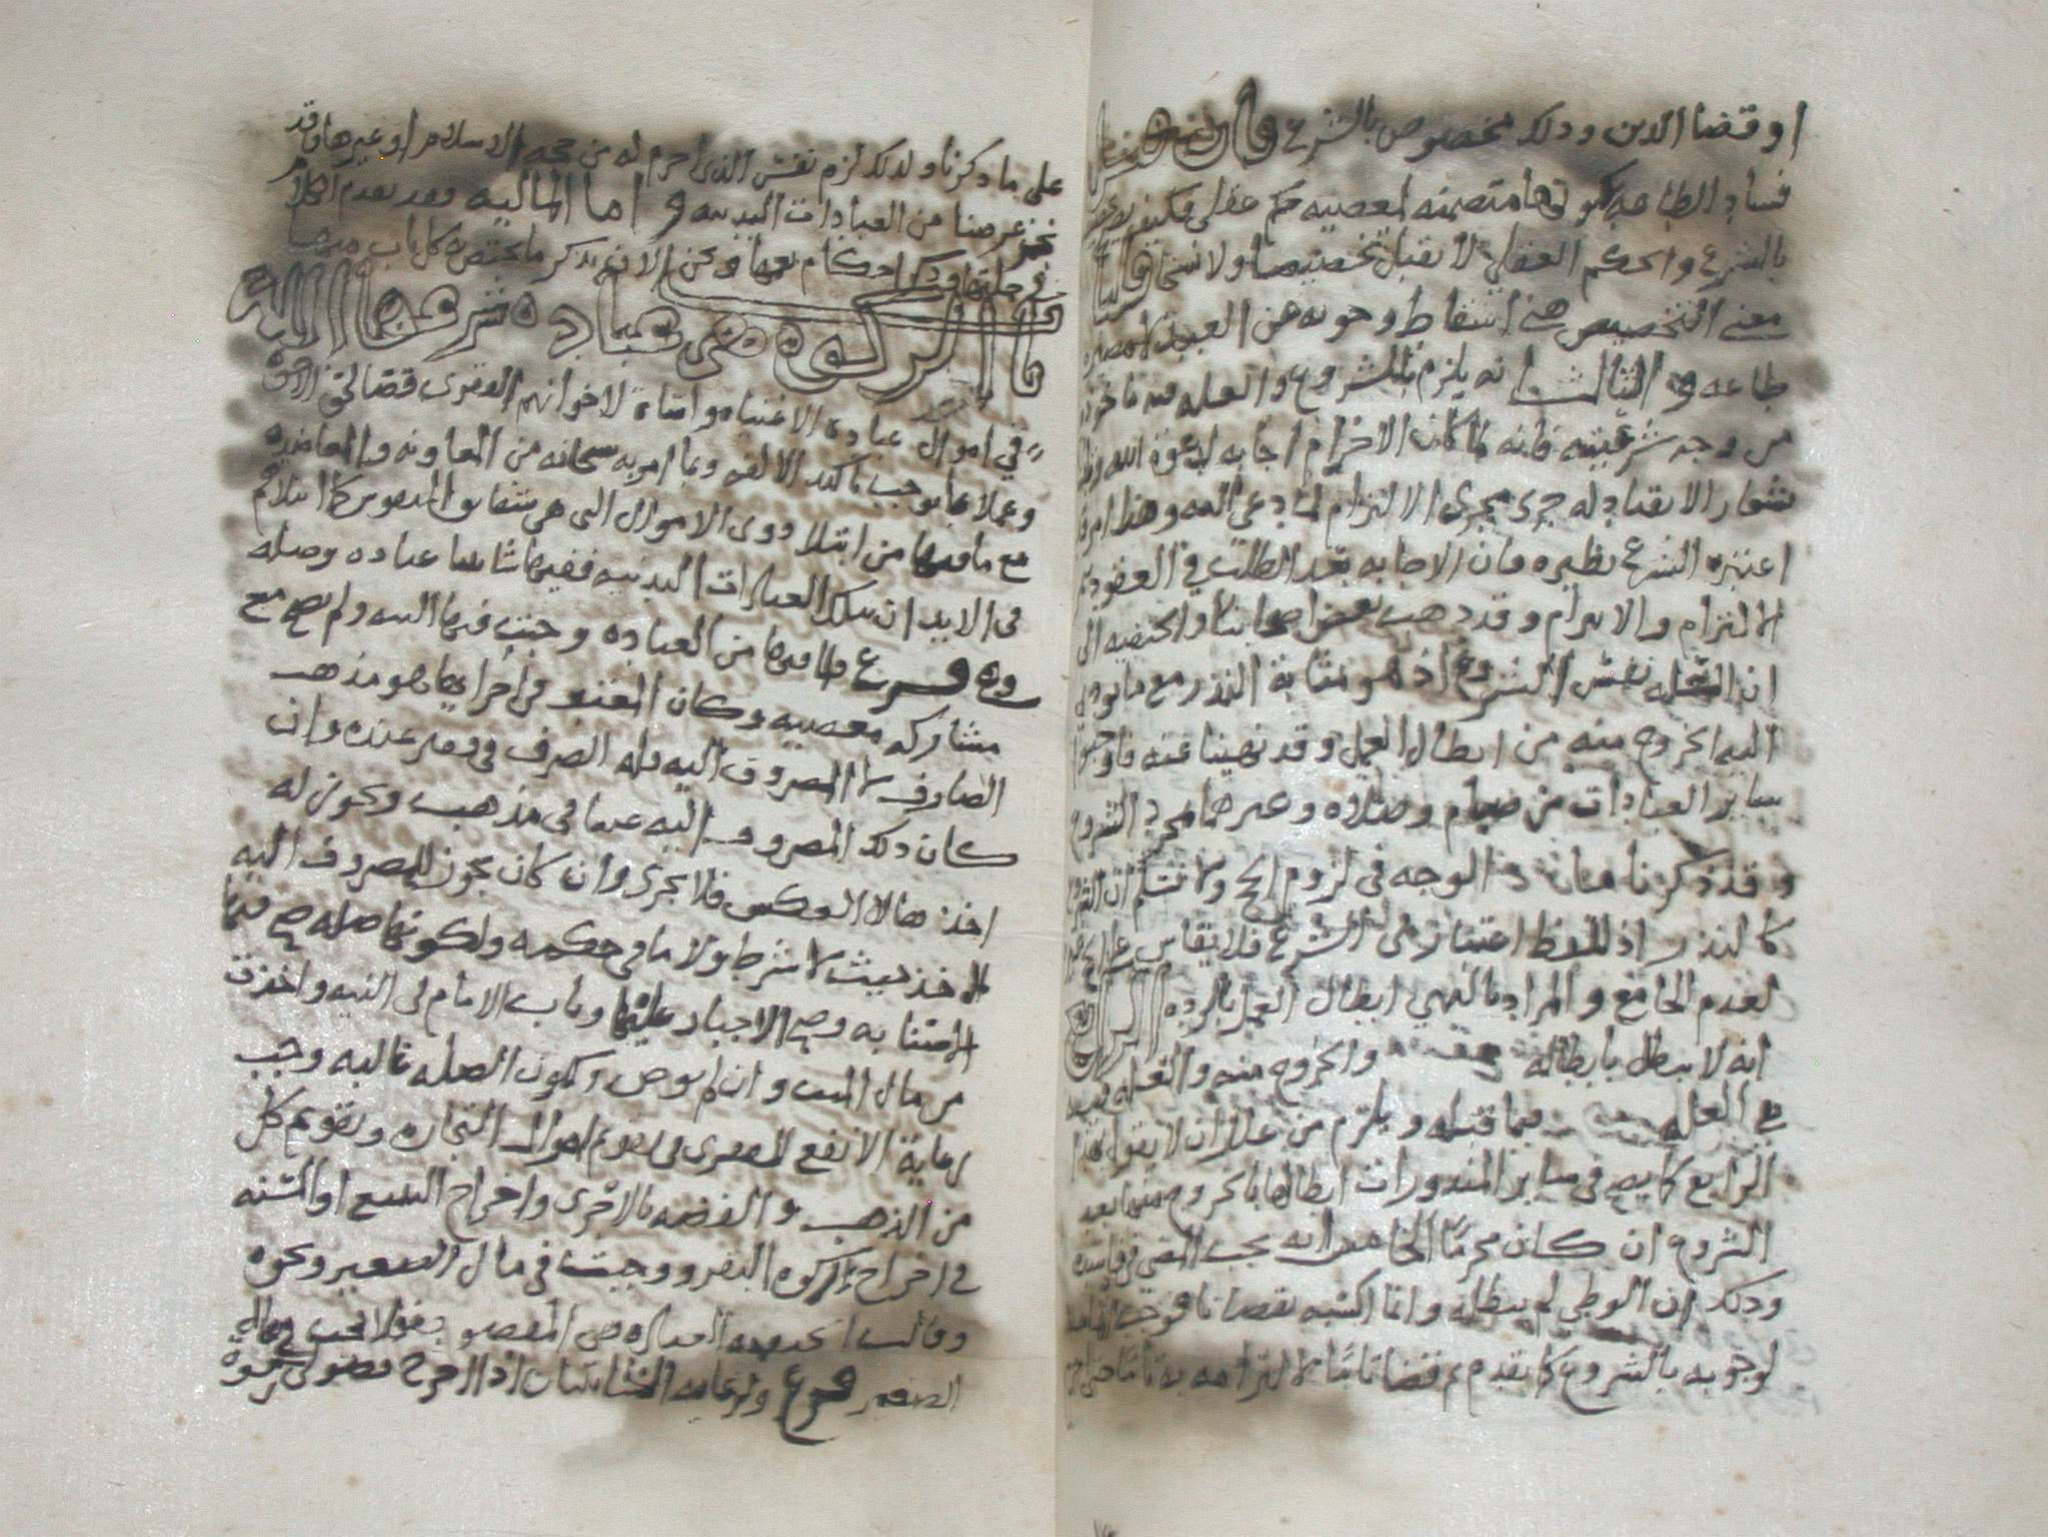 او قضا الدين وذلك مخصوص بالشرع فان قيل
فساد الطاعه بكونها متضمنه لمعصيه حكم عقلي فكيف
بالشرع والحكم العقلي لا يقبل تخصيصا ولا نسخا قلنا
معنى التخصيص هنا اسقاط وجوبه عن العبد
طاعه وه الثالث انه يلزم بالشروع والعله فيه ماخوذه
من وجه شرعيته فانه لما كان الاحرام اجابه لدعوة الله
شعار الانقياد له جرى مجرى الالتزام لما دعي اليه وهذا امر قد
اعتبره الشرع نظيره فان الاجابه بعد الطلب في العقود
الالتزام والابرام وقد ذهب بعض اصحابنا والحنفيه الى
ان العله نفس الشروع اذ هو بمثابة النذر مع ما يودي
اليه الخروج منه من ابطال العمل وقد نهينا عنه فاوجبوا
ساير العبادات من صيام وصلاه وغيرهما بمجرد الشروع
وقد ذكرنا الوجه في لزوم الحج ولا نسلم ان الشروع
كالنذر اذ للفظ اعتبار في الشرع فلا يقاس عليه
لعدم الجامع والمراد بالنهي ابطال العمل بالرده الرابع
انه لا يبطل بابطاله والخروج منه والعله
هي العله فيما قبله ويلزم من علل ان لا يقول بهذا
الرابع كما يصح في ساير المنذورات ابطالها بالخروج منها بعد
الشروع ان كان محرما الخامس انه يجب المضي في فاسده
وذلك ان الوطي لم يبطله وانما اكسبه نقصانا فوجب
لوجوبه بالشروع كما تقدم ثم قضا تاما لالتزامه به تاما
على ما ذكرنا ولذلك لزم نفس الذي احرم له من حجه الاسلام او غيرها وقد
نجز غرضنا من العبادات البدنيه و اما الماليه فقد تقدم الكلام
في جملتها وذكر احكام تعمها ونحن الان نذكر ما يختص به كل باب منها
باب الزكوه هي عباده شرعها الله
في اموال عباده الاغنياء مواساة لاخوانهم الفقرى قضا لحق الاخوه
وعملا بما يوجب تاكيد الالفه وبما امر به سبحانه من المعاونه والمعاضده
مع ما فيها من ابتلا ذوى الاموال التي هي شقايق النفوس كما ابتلاهم
في الابدان بتلك العبادات البدنيه ففيها شايبتا عباده وصله
وه فرع فلما فيها من العباده وجبت فيها النيه ولم يصح مع
مشاركه معصيه وكان المعتبر في اجرايها هو مذهب
الصارف لا المصروف اليه فله الصرف في فقير عنده وان
كان ذلك المصروف اليه غنيا في مذهب ويجوز له
اخذها لا العكس فلا يجزى وان كان يجوز للمصروف اليه
الاخذ حيث لا شرط ولا ما في حكمه ولكونها صله صح فيها
الاستنابه وصح الاجبار عليها وناب الامام في النيه واخذت
من مال الميت وان لم يوص ولكون الصله غالبه وجب
رعاية الانفع للفقرى في تقويم اموال التجاره وتقويم كل
من الذهب والفضه بالاخرى واخراج التبيع او المسنه
في اخراج زكوه البقر ووجبت في مال الصغير ونحوه
وقالت الحنفيه العباده هي المقصود فقط لا تجب في مال
الصغير فرع ولرعايه الشايبتان اذا خرج